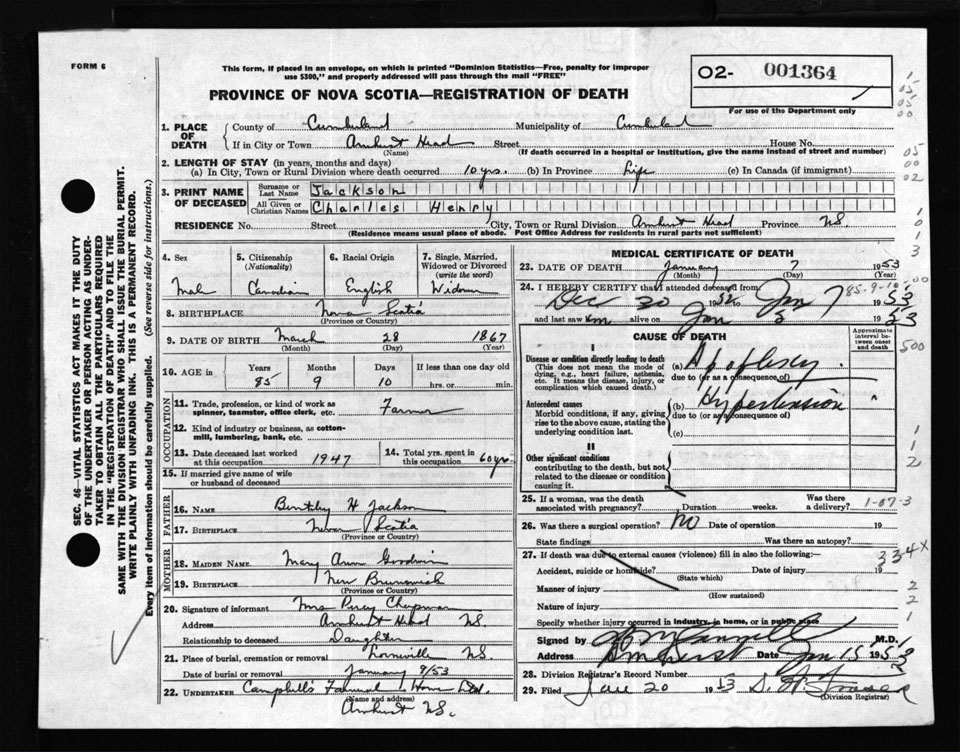 FORM 6
This form, if placed in an envelope, on which is printed "Dominion Statistics—Free, penalty for improper
use $300," and properly addressed will pass through the mail "FREE"
O2- 001364
For use of the Department only
PROVINCE OF NOVA SCOTIA—REGISTRATION OF DEATH
1. PLACE OF DEATH { County of Cumberland Municipality of Cumberland
If in City or Town Amherst Head Street House No.
(Name) (If death occurred in a hospital or institution, give the name instead of street and number)
2. LENGTH OF STAY (in years, months and days)
(a) In City, Town or Rural Division where death occurred 10 yrs. (b) In Province Life (c) In Canada (if immigrant)
3. PRINT NAME OF DECEASED { Surname or Last Name Jackson
All Given or Christian Names Charles Henry
RESIDENCE No. Street City, Town or Rural Division Amherst Head Province NS.
(Residence means usual place of abode. Post Office Address for residents in rural parts not sufficient)
SEC. 46—VITAL STATISTICS ACT MAKES IT THE DUTY
OF THE UNDERTAKER OR PERSON ACTING AS UNDER-
TAKER TO OBTAIN ALL THE PARTICULARS REQUIRED
IN THE "REGISTRATION OF DEATH" AND TO FILE THE
SAME WITH THE DIVISION REGISTRAR WHO SHALL ISSUE THE BURIAL PERMIT.
WRITE PLAINLY WITH UNFADING INK. THIS IS A PERMANENT RECORD.
Every item of information should be carefully supplied. (See reverse side for instructions.)
4. Sex 5. Citizenship (Nationality) 6. Racial Origin 7. Single, Married, Widowed or Divorced (write the word)
Male Canadian English Widower
8. BIRTHPLACE Nova Scotia
(Province or Country)
9. DATE OF BIRTH March 28 1867
(Month) (Day) (Year)
10. AGE Years Months Days If less than one day old
85 9 10 hrs. or min.
OCCUPATION
11. Trade, profession, or kind of work as spinner, teamster, office clerk, etc. Farmer
12. Kind of industry or business, as cotton-mill, lumbering, bank, etc.
13. Date deceased last worked at this occupation 1947 14. Total yrs. spent in this occupation 60 yrs
15. If married give name of wife or husband of deceased
FATHER
16. NAME Bentley H Jackson
17. BIRTHPLACE Nova Scotia
(Province or Country)
MOTHER
18. MAIDEN NAME Mary Ann Goodwin
19. BIRTHPLACE New Brunswick
(Province or Country)
20. Signature of informant Mrs Percy Chapman
Address Amherst Head NS.
Relationship to deceased Daughter
21. Place of burial, cremation or removal Lorneville NS.
Date of burial or removal January 9/53
22. UNDERTAKER Campbell's Funeral Home Ltd.
(Name and address)
Amherst NS.
MEDICAL CERTIFICATE OF DEATH
23. DATE OF DEATH January 7 1953
(Month) (Day) (Year)
24. I HEREBY CERTIFY that I attended deceased from:
Dec 30 1952 Jan 7 1953
85-9-10
and last saw him alive on Jan 3 1953
CAUSE OF DEATH
Approximate interval between onset and death
I
Disease or condition directly leading to death
(This does not mean the mode of dying, e.g., heart failure, asthenia, etc. It means the disease, injury, or complication which caused death.)
(a) Apoplexy
due to (or as a consequence of)
Antecedent causes
Morbid conditions, if any, giving rise to the above cause, stating the underlying condition last.
(b) Hypertension
due to (or as a consequence of)
(c)
II
Other significant conditions
contributing to the death, but not related to the disease or condition causing it.
25. If a woman, was the death associated with pregnancy? Duration weeks. Was there a delivery?
1-07-3
26. Was there a surgical operation? No Date of operation 19
State findings Was there an autopsy?
27. If death was due to external causes (violence) fill in also the following:—
334X
Accident, suicide or homicide? Date of injury 19
(State which)
Manner of injury
(How sustained)
Nature of injury
Specify whether injury occurred in industry, in home, or in public place
Signed by M.D.
Address Amherst Date Jan 15 1953
28. Division Registrar's Record Number
29. Filed 20 1953
(Division Registrar)